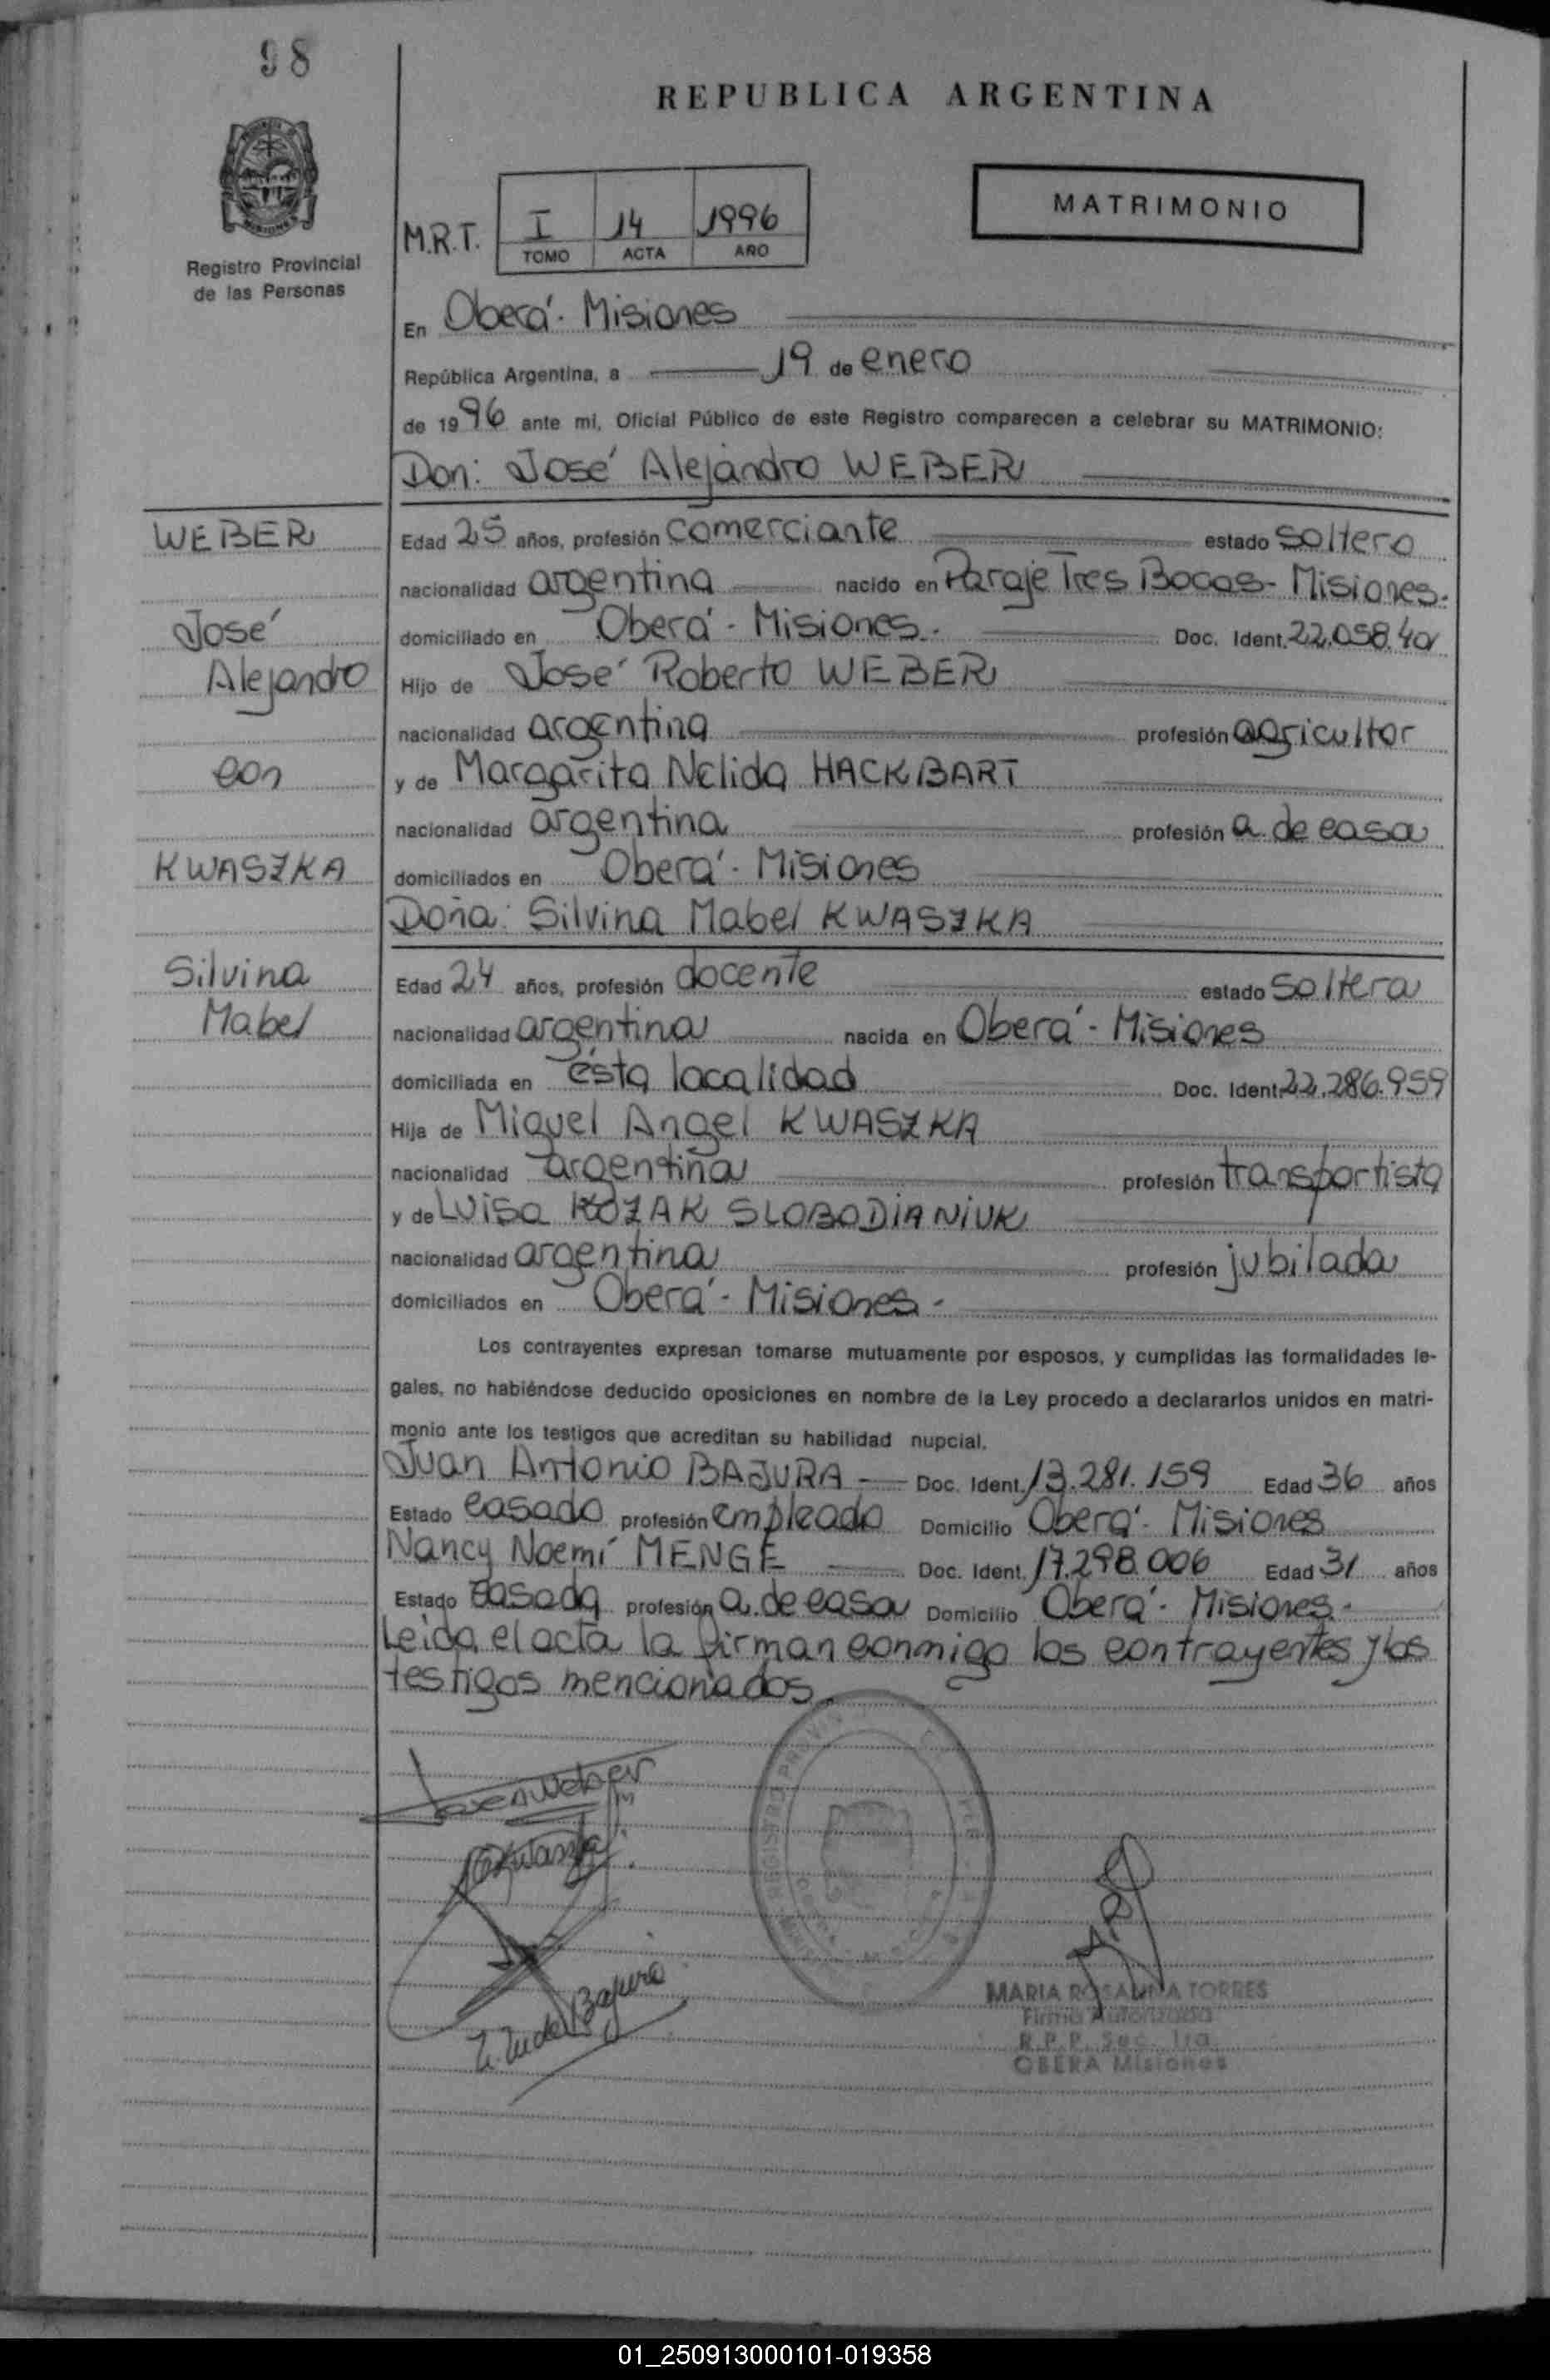 98
REPUBLICA ARGENTINA
MATRIMONIO
Registro Provincial
de las Personas
M.R.T. I 14 1996
TOMO ACTA AÑO
En Oberá - Misiones
República Argentina, a 19 de enero
de 1996 ante mi, Oficial Público de este Registro comparecen a celebrar su MATRIMONIO:
Don: José Alejandro WEBER
WEBER
José
Alejandro
con
KWASZKA
Silvina
Mabel
Edad 25 años, profesión comerciante estado soltero
nacionalidad argentina nacido en Paraje Tres Bocas - Misiones.
domiciliado en Oberá - Misiones. Doc. Ident.
Hijo de José Roberto WEBER
nacionalidad argentina profesión agricultor
y de Margarita Nelida HACKBART
nacionalidad argentina profesión a. de casa
domiciliados en Oberá - Misiones
Doña: Silvina Mabel KWASZKA
Edad 24 años, profesión docente estado soltera
nacionalidad argentina nacida en Oberá - Misiones
domiciliada en ésta localidad Doc. Ident. 22.286.959
Hija de Miguel Angel KWASZKA
nacionalidad argentina profesión transportista
y de Luisa KOZAK SLOBODIANIUK
nacionalidad argentina profesión jubilada
domiciliados en Oberá - Misiones -
Los contrayentes expresan tomarse mutuamente por esposos, y cumplidas las formalidades le-
gales, no habiéndose deducido oposiciones en nombre de la Ley procedo a declararlos unidos en matri-
monio ante los testigos que acreditan su habilidad nupcial.
Juan Antonio BAJURA Doc. Ident. 13.281.159 Edad 36 años
Estado casado profesión empleado Domicilio Oberá - Misiones
Nancy Noemí MENGE Doc. Ident. 17.298.006 Edad 31 años
Estado casada profesión a. de casa Domicilio Oberá - Misiones -
Leida el acta la firman conmigo los contrayentes y los
testigos mencionados.
MARIA ROSALINA TORRES
Firma Autorizada
R.P.P. Sec. 1ra
OBERA Misiones
01_250913000101-019358